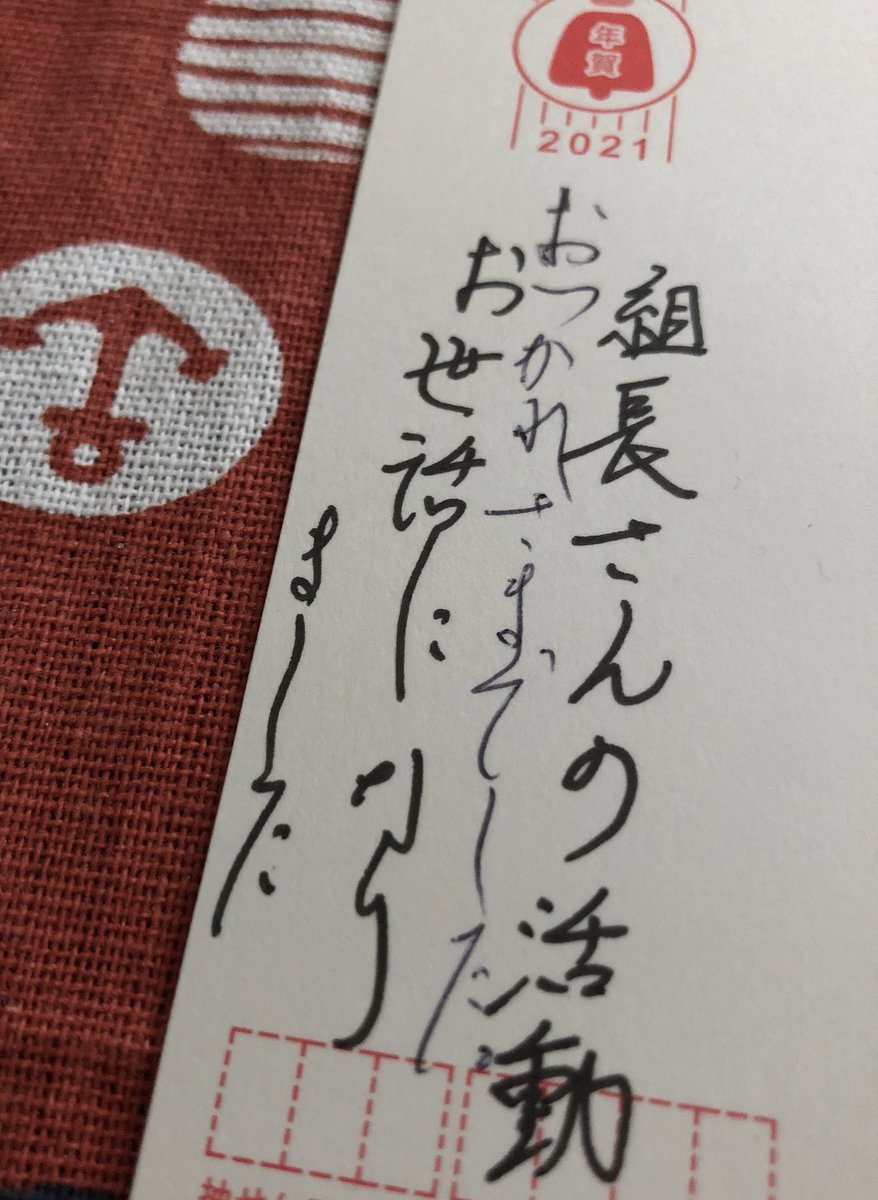 年賀
2021
組長さんの活動
おつかれさまでした。
お世話になり
ました